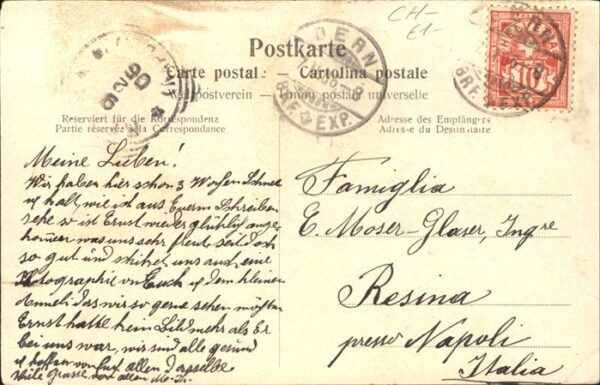 CH-
E1-
Postkarte
Carte postal. Cartolina postale
Weltpostverein — Union postale universelle
Reserviert für die Korrespondenz
Partie réservée à la Correspondance
Adresse des Empfängers
Adresse du Destinataire
BERN
BRF. EXP.
Meine Lieben!
Wir haben hier schon 3 Wochen Schnee
u kalt, wie ich aus Euerm Schreiben
sehe so ist Ernst wieder glücklich ange
kommen was uns sehr freut seid doch
so gut und schicket uns auch eine
Photographie von Euch u dem kleinen
Anneli das wir so gerne sehen möchten
Ernst hatte kein Bild mehr als Er
bei uns war, wir sind alle gesund
u hoffen von Euch allen dasselbe
viele Grüsse von allen
Famiglia
E. Moser-Glaser, Ingre
Resina
presso Napoli
Italia